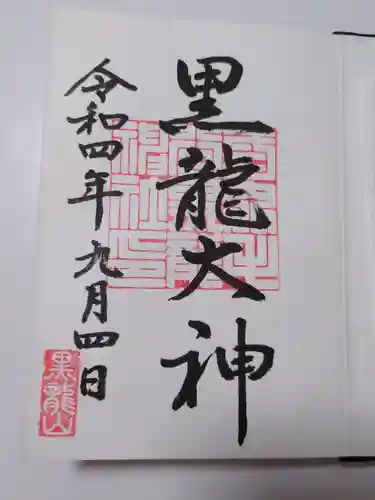 黒龍大神
令和四年九月四日
黒龍山